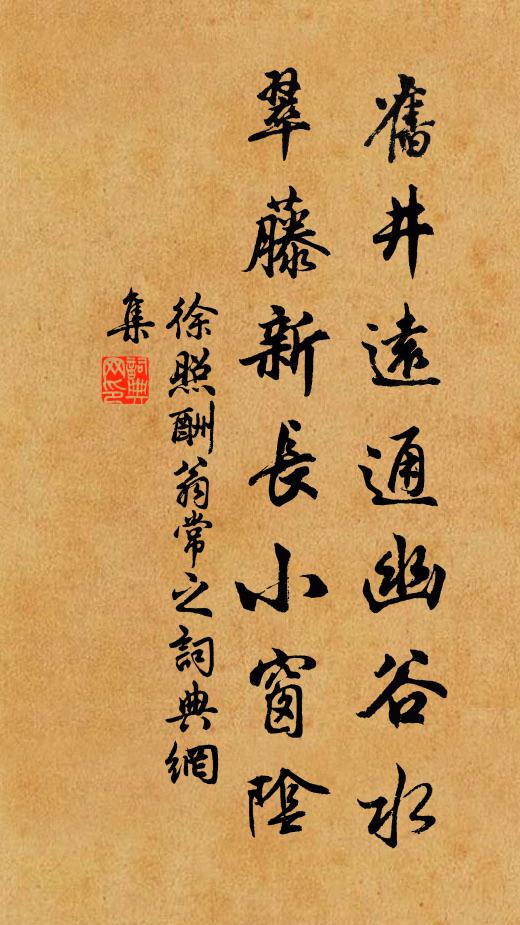 舊井遠通幽谷水
翠藤新長小窗陰
徐照酬翁常之詞典網
集
詞典
网印